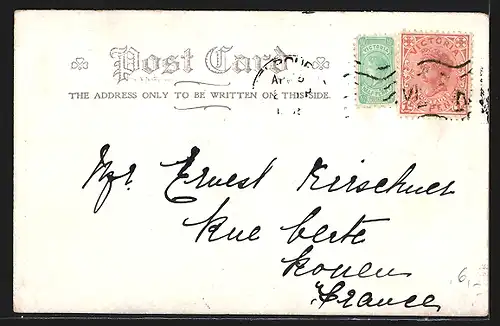 Post Card
THE ADDRESS ONLY TO BE WRITTEN ON THIS SIDE.
VICTORIA
VICTORIA
Mr. Ernest Kirschner
Rue Verte
Rouen
France
6,-